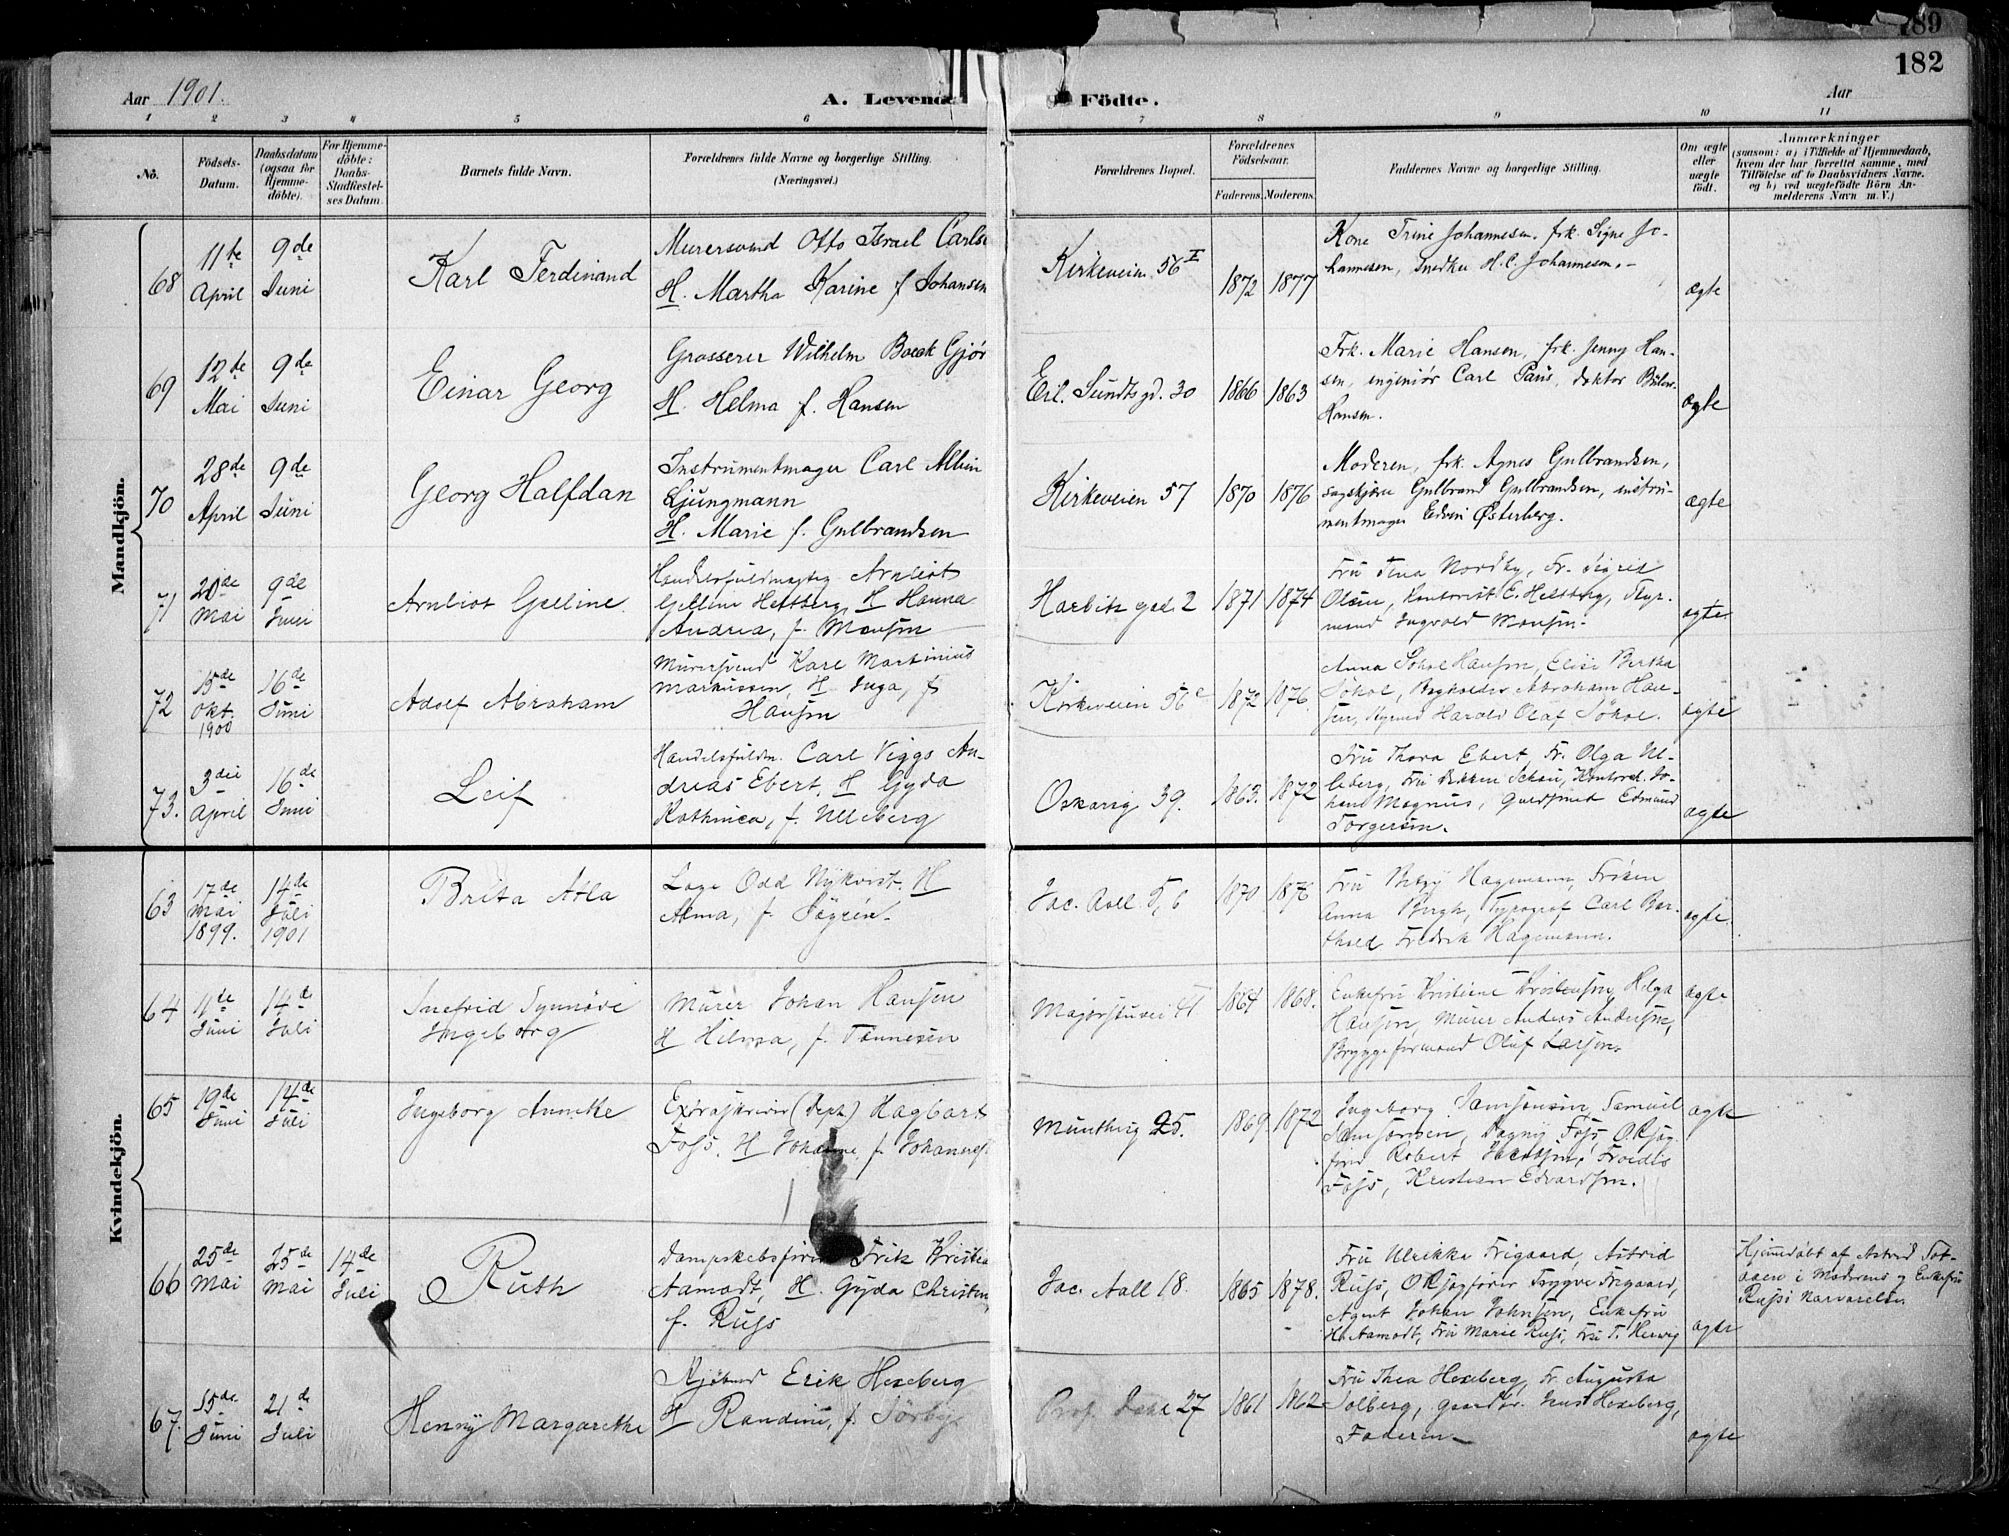 189
182
Aar 1901.
A. Levende Födte.
Aar
1 2 3 4 5 6 7 8 9 10 11
No.
Födsels-Datum.
Daabsdatum (ogsaa for Hjemme-döbte).
For Hjemme-döbte: Daabs-Stadfæstel-ses Datum.
Barnets fulde Navn.
Forældrenes fulde Navne og borgerlige Stilling.
(Næringsvei.)
Forældrenes Bopæl.
Forældrenes Födselsaar.
Faderens. Moderens.
Faddernes Navne og borgerlige Stilling.
Om ægte eller uægte födt.
Anmærkninger
(saasom: a) i Tilfælde af Hjemmedaab,
hvem der har forrettet samme, med
Tilföielse af to Daabsvidners Navne.
og b) ved uægtefödte Börn An-
melderens Navn m. V.)
Mandkjön.
68
11te April
9de Juni
Karl Ferdinand
Murersvend Otto Israel
H. Martha Karine f Johansen
Kirkeveien 56 I
1872 1877
Kone Trine Johannesen, frk. Signe Jo-
hannesen, snedker H. C. Johannesen.-
ægte
69
12de Mai
9de Juni
Einar Georg
Grosserer Wilhelm Boeck
H. Helma f. Hansen
Eil. Sundtsgd. 30
1866 1863
Frk. Marie Hansen, frk. Jenny Han-
sen, ingeniör Carl Paus, doktor Bülow-
Hansen.
ægte
70
28de April
9de Juni
Georg Halfdan
Instrumentmager Carl Albin
Ljungmann
H. Marie f. Gulbrandsen
Kirkeveien 57
1870 1876
Moderen, frk. Agnes Gulbrandsen,
Gulbrand Gulbrandsen, instru-
mentmager Edvin Østerberg.
ægte
71
20de Mai
9de Juni
Arnliot Gelline
Handelsfuldmægtig Arnliot
Gelline Hettberg, H Hanna
Andrea, f. Monsen
Harbitz gad. 2
1871 1874
Fru Tina Nordby, Fr. Sigrid
Olsen, Kontorist E. Hetsberg, Styr-
mand Ingvald Monsen.
ægte.
72
15de Okt. 1900
16de Juni
Adolf Abraham
Murersvend Karl Martinius
Markussen, H Inga, f
Hansen
Kirkeveien 56 c
1872 1876.
Anna Sokol Hansen, Elise Bertha
Sökol, Abraham Han-
sen, Harald Olaf Sökol.
ægte
73.
3die April
16de Juni
Leif
Handelsfuldm. Carl Viggo An-
dreas Ebert, H Gyda
Kathinca, f. Ulleberg
Oskarsg 39.
1863. 1872
Fru Thora Ebert, Fr. Olga Ul-
leberg, Fru Schou, Kontorist Jo-
han Magnus, Guldsmed Edmund
Torgersen.
ægte
Kvindekjön.
63
17de Mai 1899.
14de Juli 1901
Brita Atla
Læge Odd Nykvist. H
Alma, f.
Jac. Aall G, 6
1870 1876
Fru Betzy Hagemann, Fröken
Anna Bergh, Typograf Carl Bar-
thold Fredrik Hagemann.
ægte.
64
11de Juni
14de Juli
Snefrid Synnöve
Ingeborg
Murer Johan Hansen
H Hilma, f. Tönnesen
Majorstuvei 41
1864 1868.
Enkefru Kristiane Kristensen, Helga
Hansen, Murer Anders Andersen,
Bryggeformand Oluf Larsen.
ægte
65
19de Juni
14de Juli
Ingeborg Annethe
Extraskriver (Dept.) Hagbart
Foss. H Johanne, f.
Muntheg 25.
1869 1872
Ingeborg Samsonsen, Samuel
Samsonsen, Dagny Foss, O.Rsag-
förer Robert Jacobsen, Frodis
Foss, Kristian Edvardsen.
ægte
66
25de Mai
25de Mai
14de Juli
Ruth
Dampskebsförer Erik
Aamodt, H. Gyda
f. Russ
Jac. Aall 18.
1865 1878.
Fru Ulrikke Frigaard, Astrid
Russ, ORsagförer Trygve Frigaard,
Agent Johan Johnsen, Enkefru
H. Aamodt, Fru Marie Russ, Fru T. Herwig
ægte
Hjemdöbt af Astrid
i Moderens og Enkefru
Russ's Nærværelse.
67.
15de Juni
21de Juli
Henny Margarethe
Kjöbmd Erik Hexeberg
H Randine, f. Sörbye
Prof. Dahl 27
1861 1862
Fru Thea Hexeberg, Fr. Augusta
Solberg, Hexeberg,
Faderen
ægte